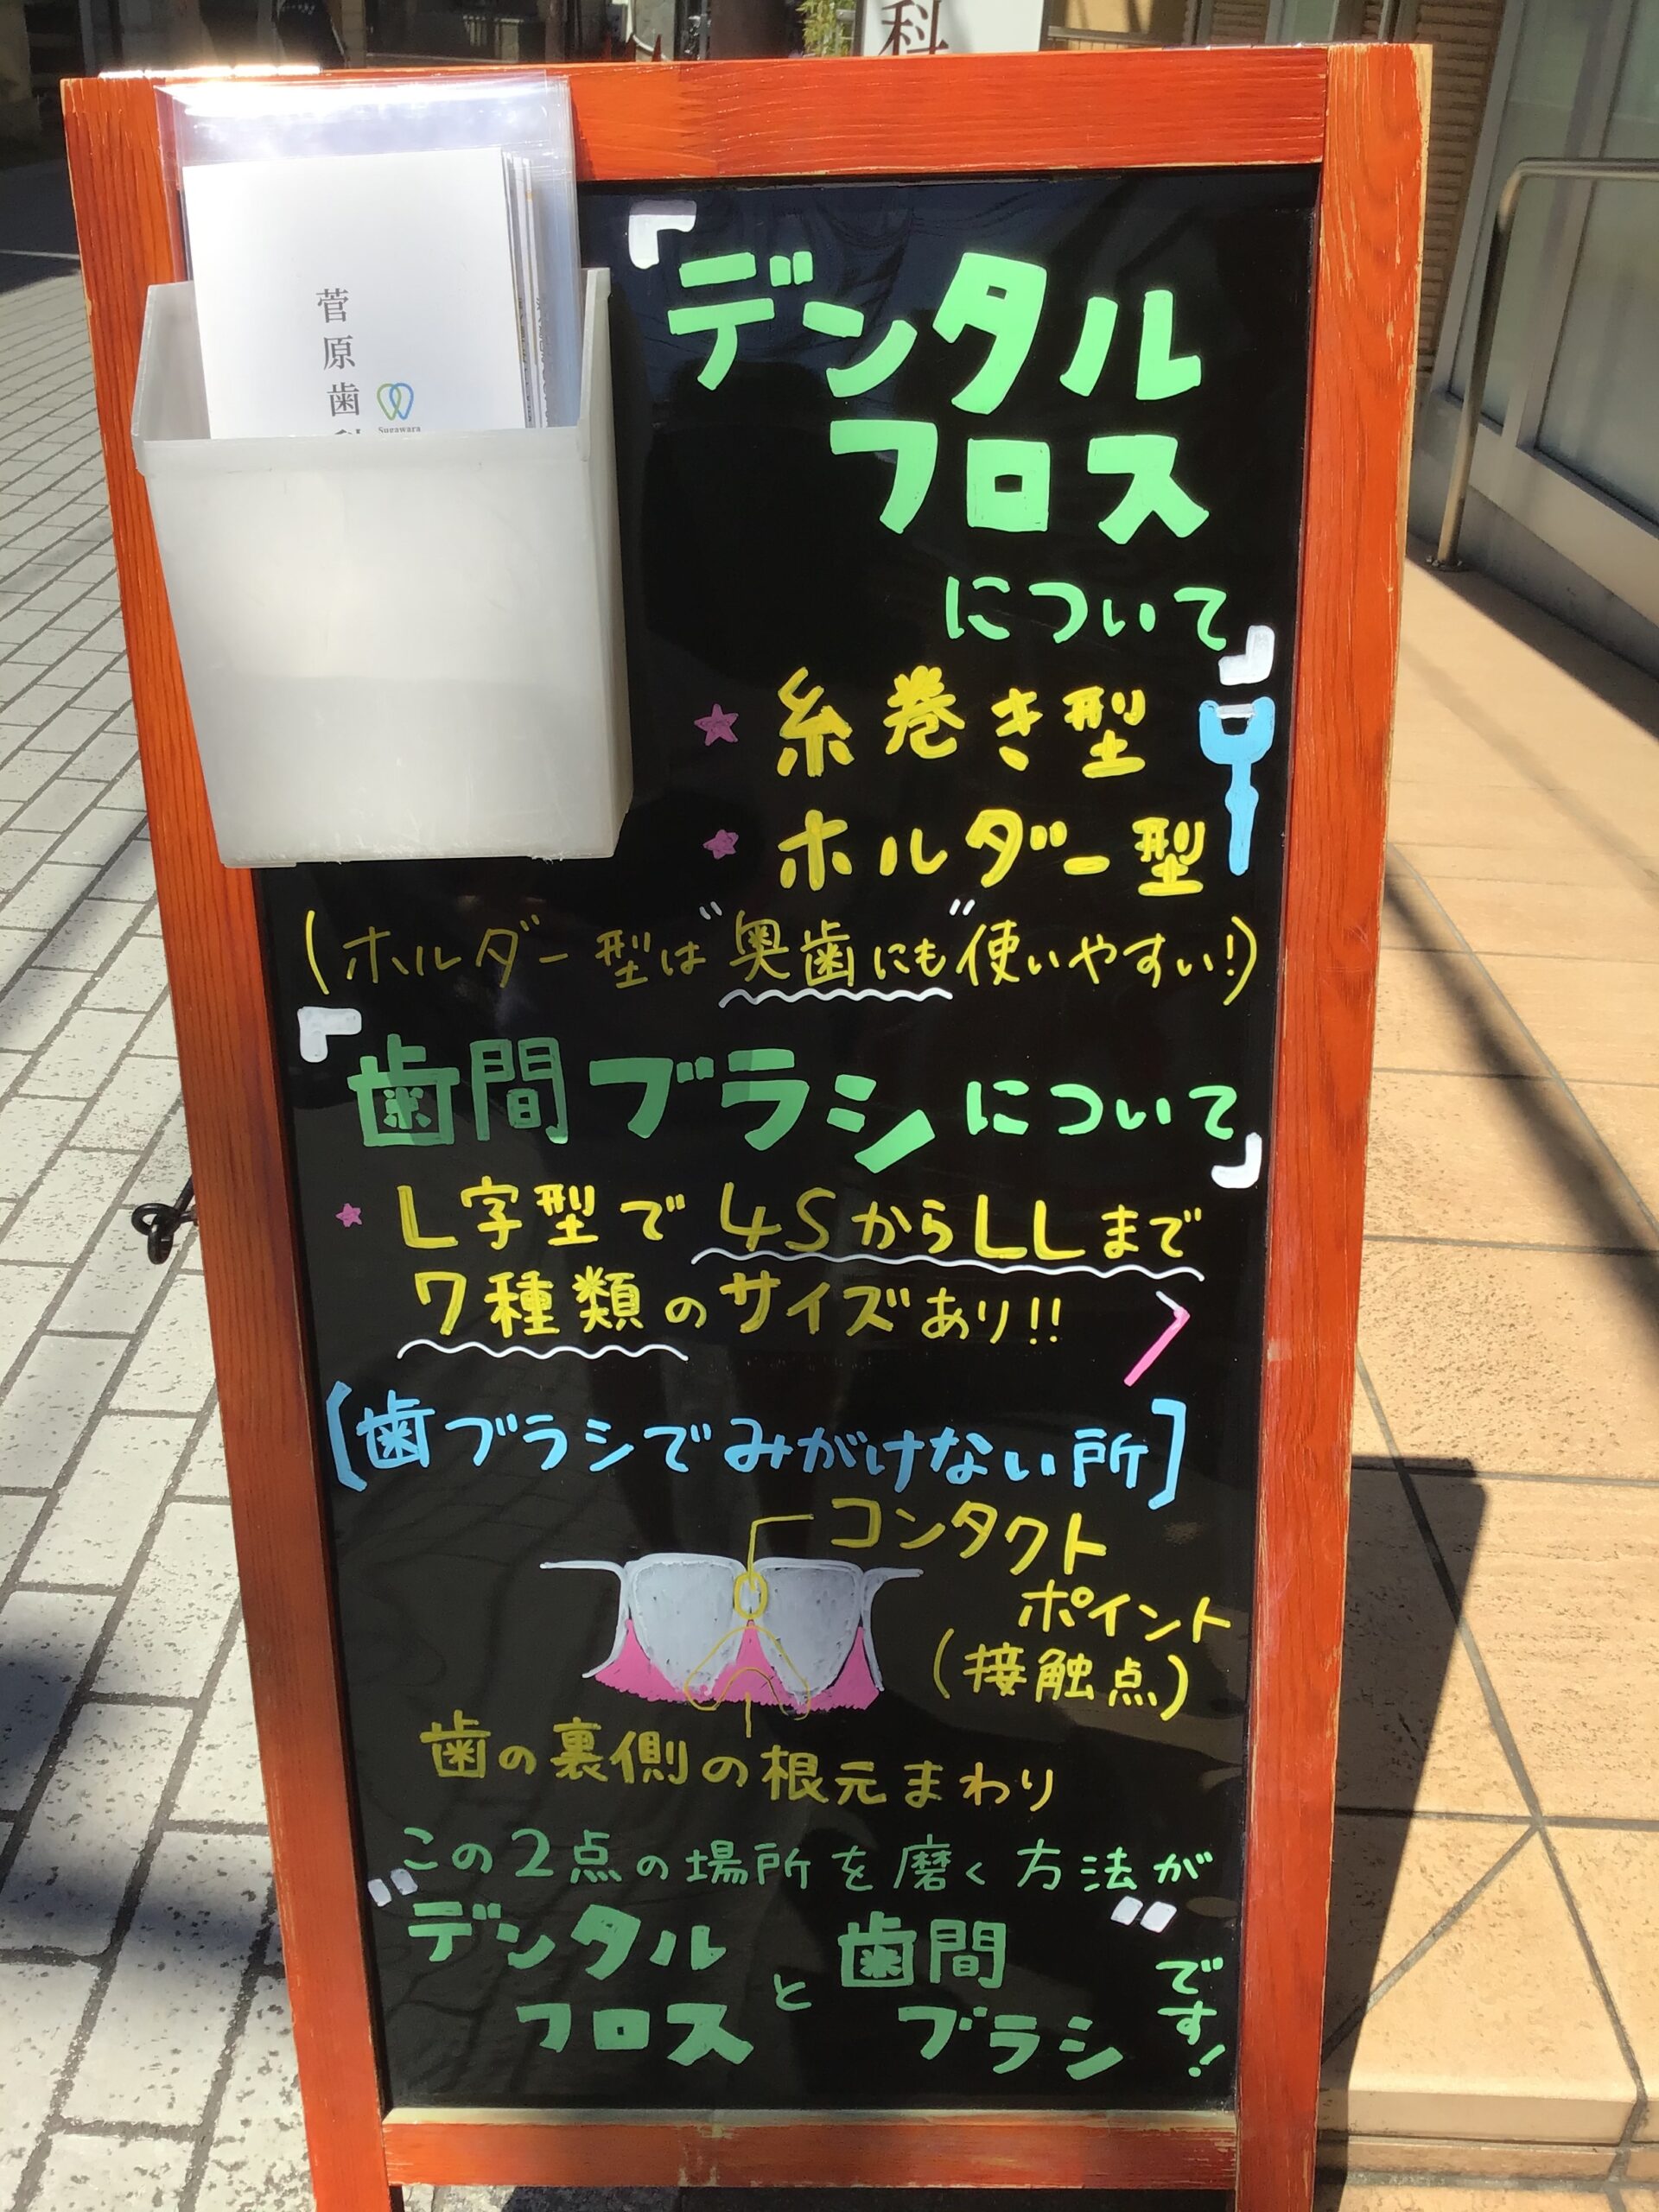 科
菅原歯
Sugawara
『デンタル
フロス
について』
★ 糸巻き型
★ ホルダー型
(ホルダー型は"奥歯にも"使いやすい!)
『歯間ブラシについて』
★ L字型で4SからLLまで
7種類のサイズあり!!
[歯ブラシでみがけない所]
コンタクト
ポイント
(接触点)
歯の裏側の根元まわり
この2点の場所を磨く方法が
"デンタル
フロス
と
歯間
ブラシ"
です!